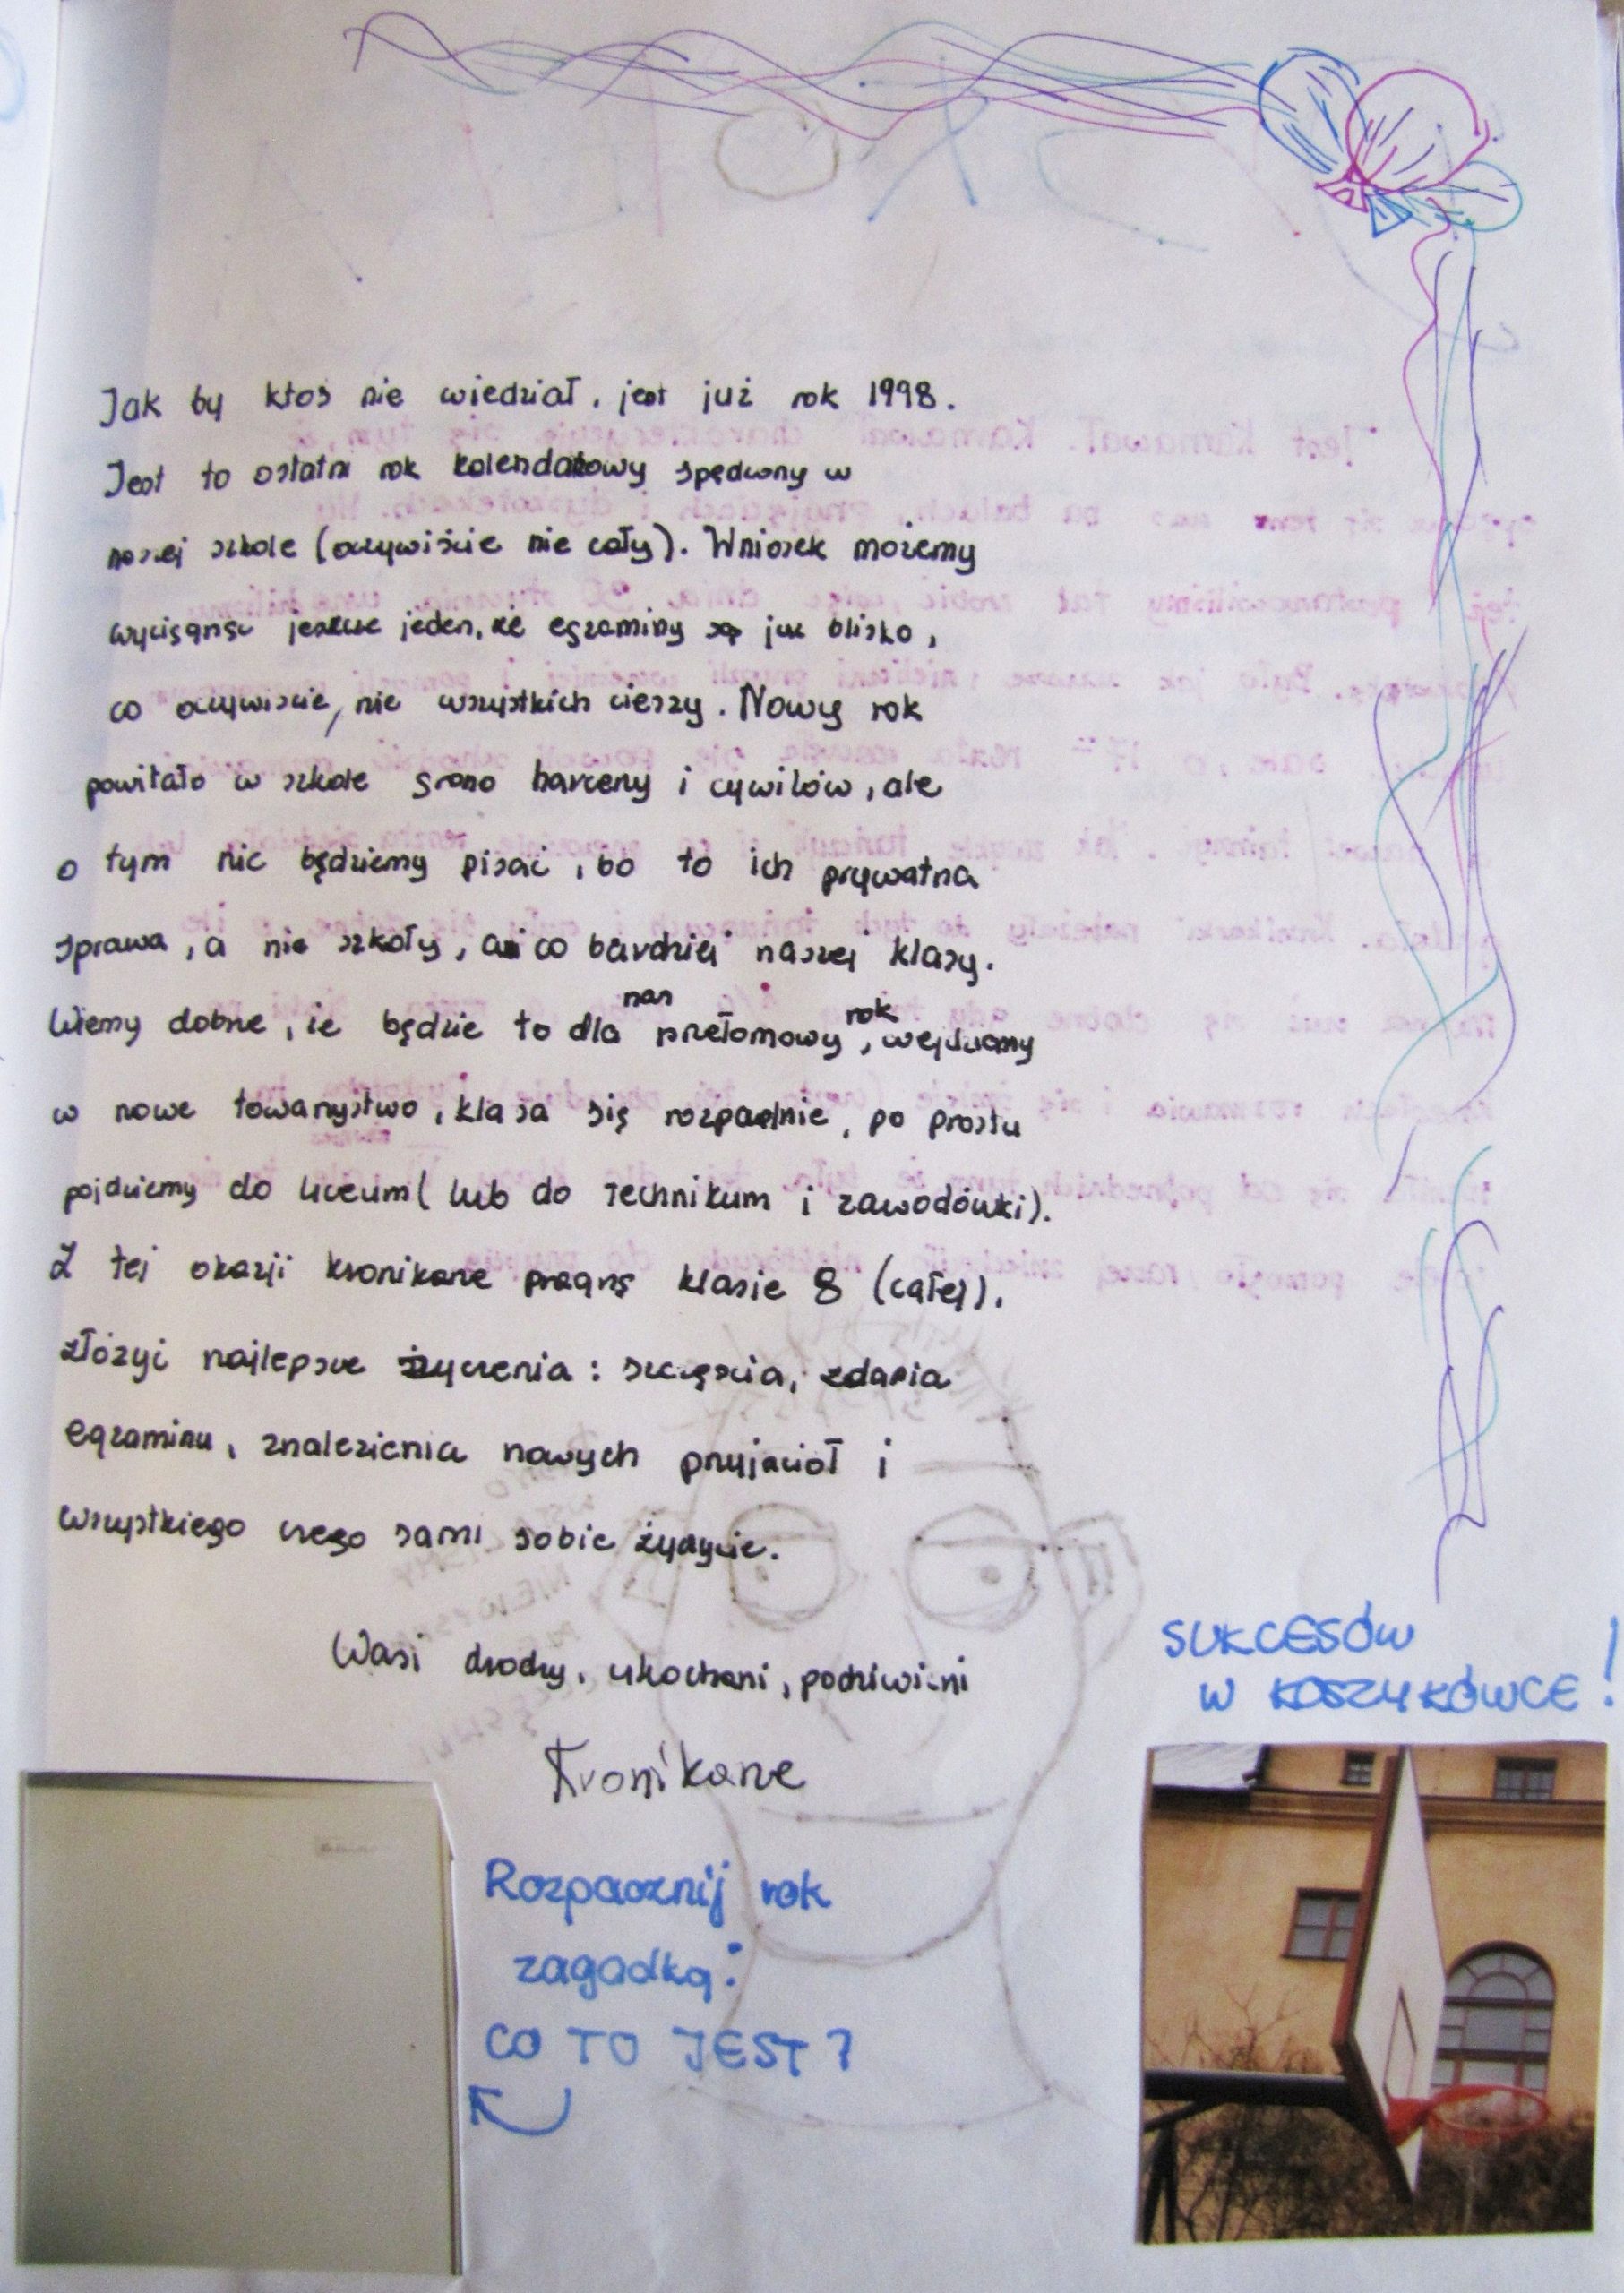 Jak by ktoś nie wiedział, jest już rok 1998.
Jest to ostatni rok kalendarzowy spędzony w
naszej szkole (oczywiście nie cały). Wniosek możemy
wyciągnąć jeszcze jeden, że egzaminy są już blisko,
co oczywiście, nie wszystkich cieszy. Nowy rok
powitało w szkole grono harcerzy i cywilów, ale
o tym nie będziemy pisać, bo to ich prywatna
sprawa, a nie szkoły, ani co bardziej naszej klasy.
Wiemy dobrze, że będzie to dla nas przełomowy rok, wejdziemy
w nowe towarzystwo, klasa się rozpadnie, po prostu
pójdziemy do liceum (lub do technikum i zawodówki).
Z tej okazji kronikarze pragną klasie 8 (całej),
złożyć najlepsze życzenia: szczęścia, zdania
egzaminu, znalezienia nowych przyjaciół i
wszystkiego czego sami sobie życzycie.
Wasi drodzy, ukochani, podziwiani
Kronikarze
SUKCESÓW
W KOSZYKÓWCE!
Rozpocznij rok
zagadką:
CO TO JEST?